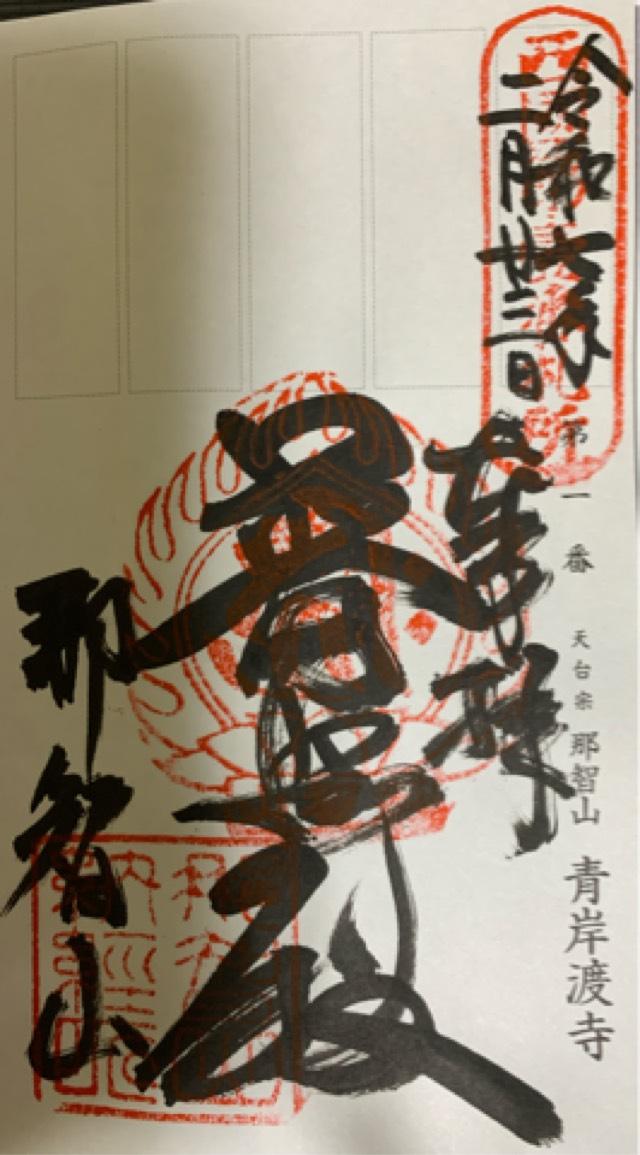 令和七年
二月廿三日
第一番 天台宗 那智山 青岸渡寺
奉拝
普照殿
那智山